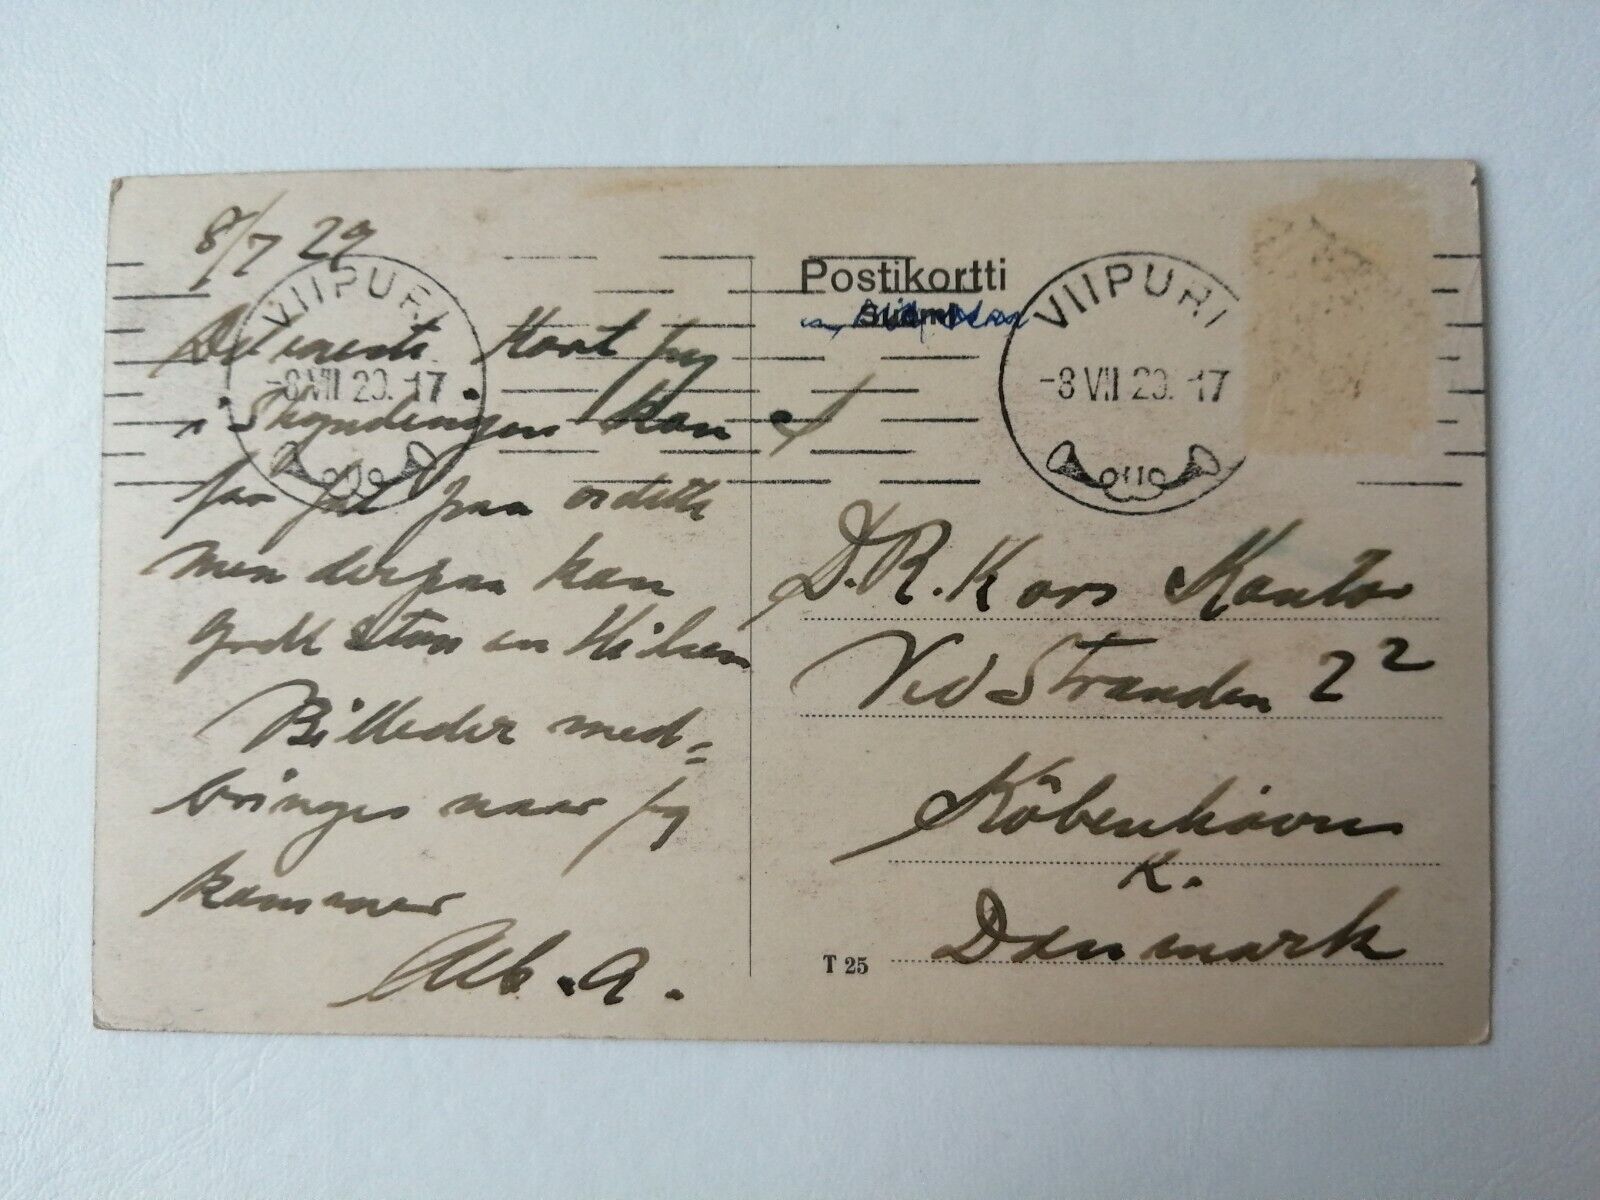 8/7 29
Det eneste Kort jeg
i Skyndingen kan
faa fat paa er dette
men derpaa kan
godt staa en Hilsen
Billeder med=
bringes naar jeg
kommer
Alb. A.
Postikortti
VIIPURI
-8 VII 29.-17
VIIPURI
-8 VII 29.-17
D. R. Kors Kontor
Ved Stranden 2²
København
K.
Danmark
T 25